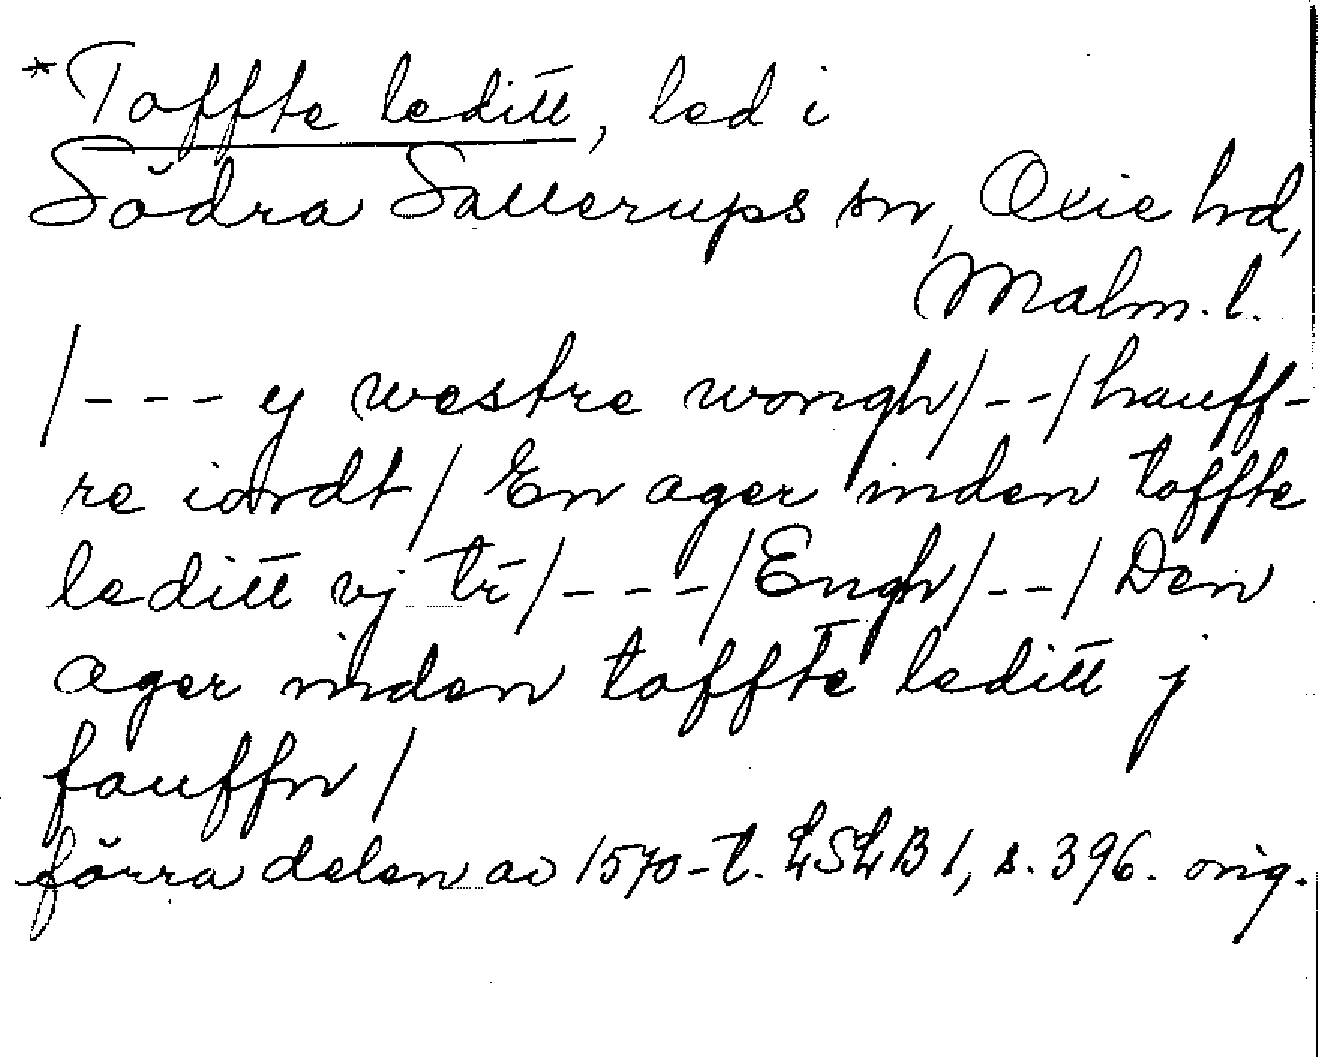 *Toffte leditt, led i
Södra Sallerups sn, Oxie hd,
Malm. l.
/--- ej westre wongh/--/hauff-
re iordt/ En ager inden toffte
leditt vj tr̄/---/Engh/--/Den
ager inden toffte leditt j
fauffn/
förra delen av 1570-t. LSLB 1, s. 396. orig.